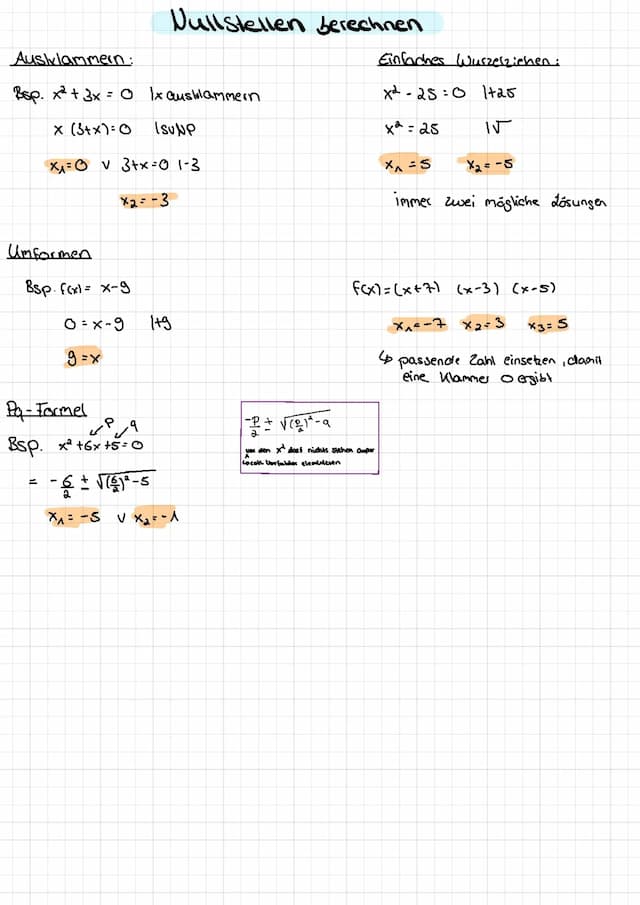 Nullstellen berechnen
Ausklammern:
Bsp. x² + 3x = 0 | x ausklammern
x (3+x) = 0 | SVNP
x₁ = 0 ∨ 3+x = 0 | -3
x₂ = -3
Einfaches Wurzelziehen:
x² - 25 = 0 | +25
x² = 25 | √
x₁ = 5 x₂ = -5
immer zwei mögliche Lösungen
Umformen
Bsp. f(x) = x-9
0 = x-9 | +9
9 = x
f(x) = (x+7) (x-3) (x-5)
x₁ = -7 x₂ = 3 x₃ = 5
↳ passende Zahl einsetzen, damit
eine Klammer 0 ergibt
Pq-Formel
p q
Bsp. x² + 6x + 5 = 0
= -6/2 ± √((6/2)² - 5)
x₁ = -5 ∨ x₂ = -1
-p/2 ± √((p/2)² - q)
vor dem x² darf nichts stehen außer